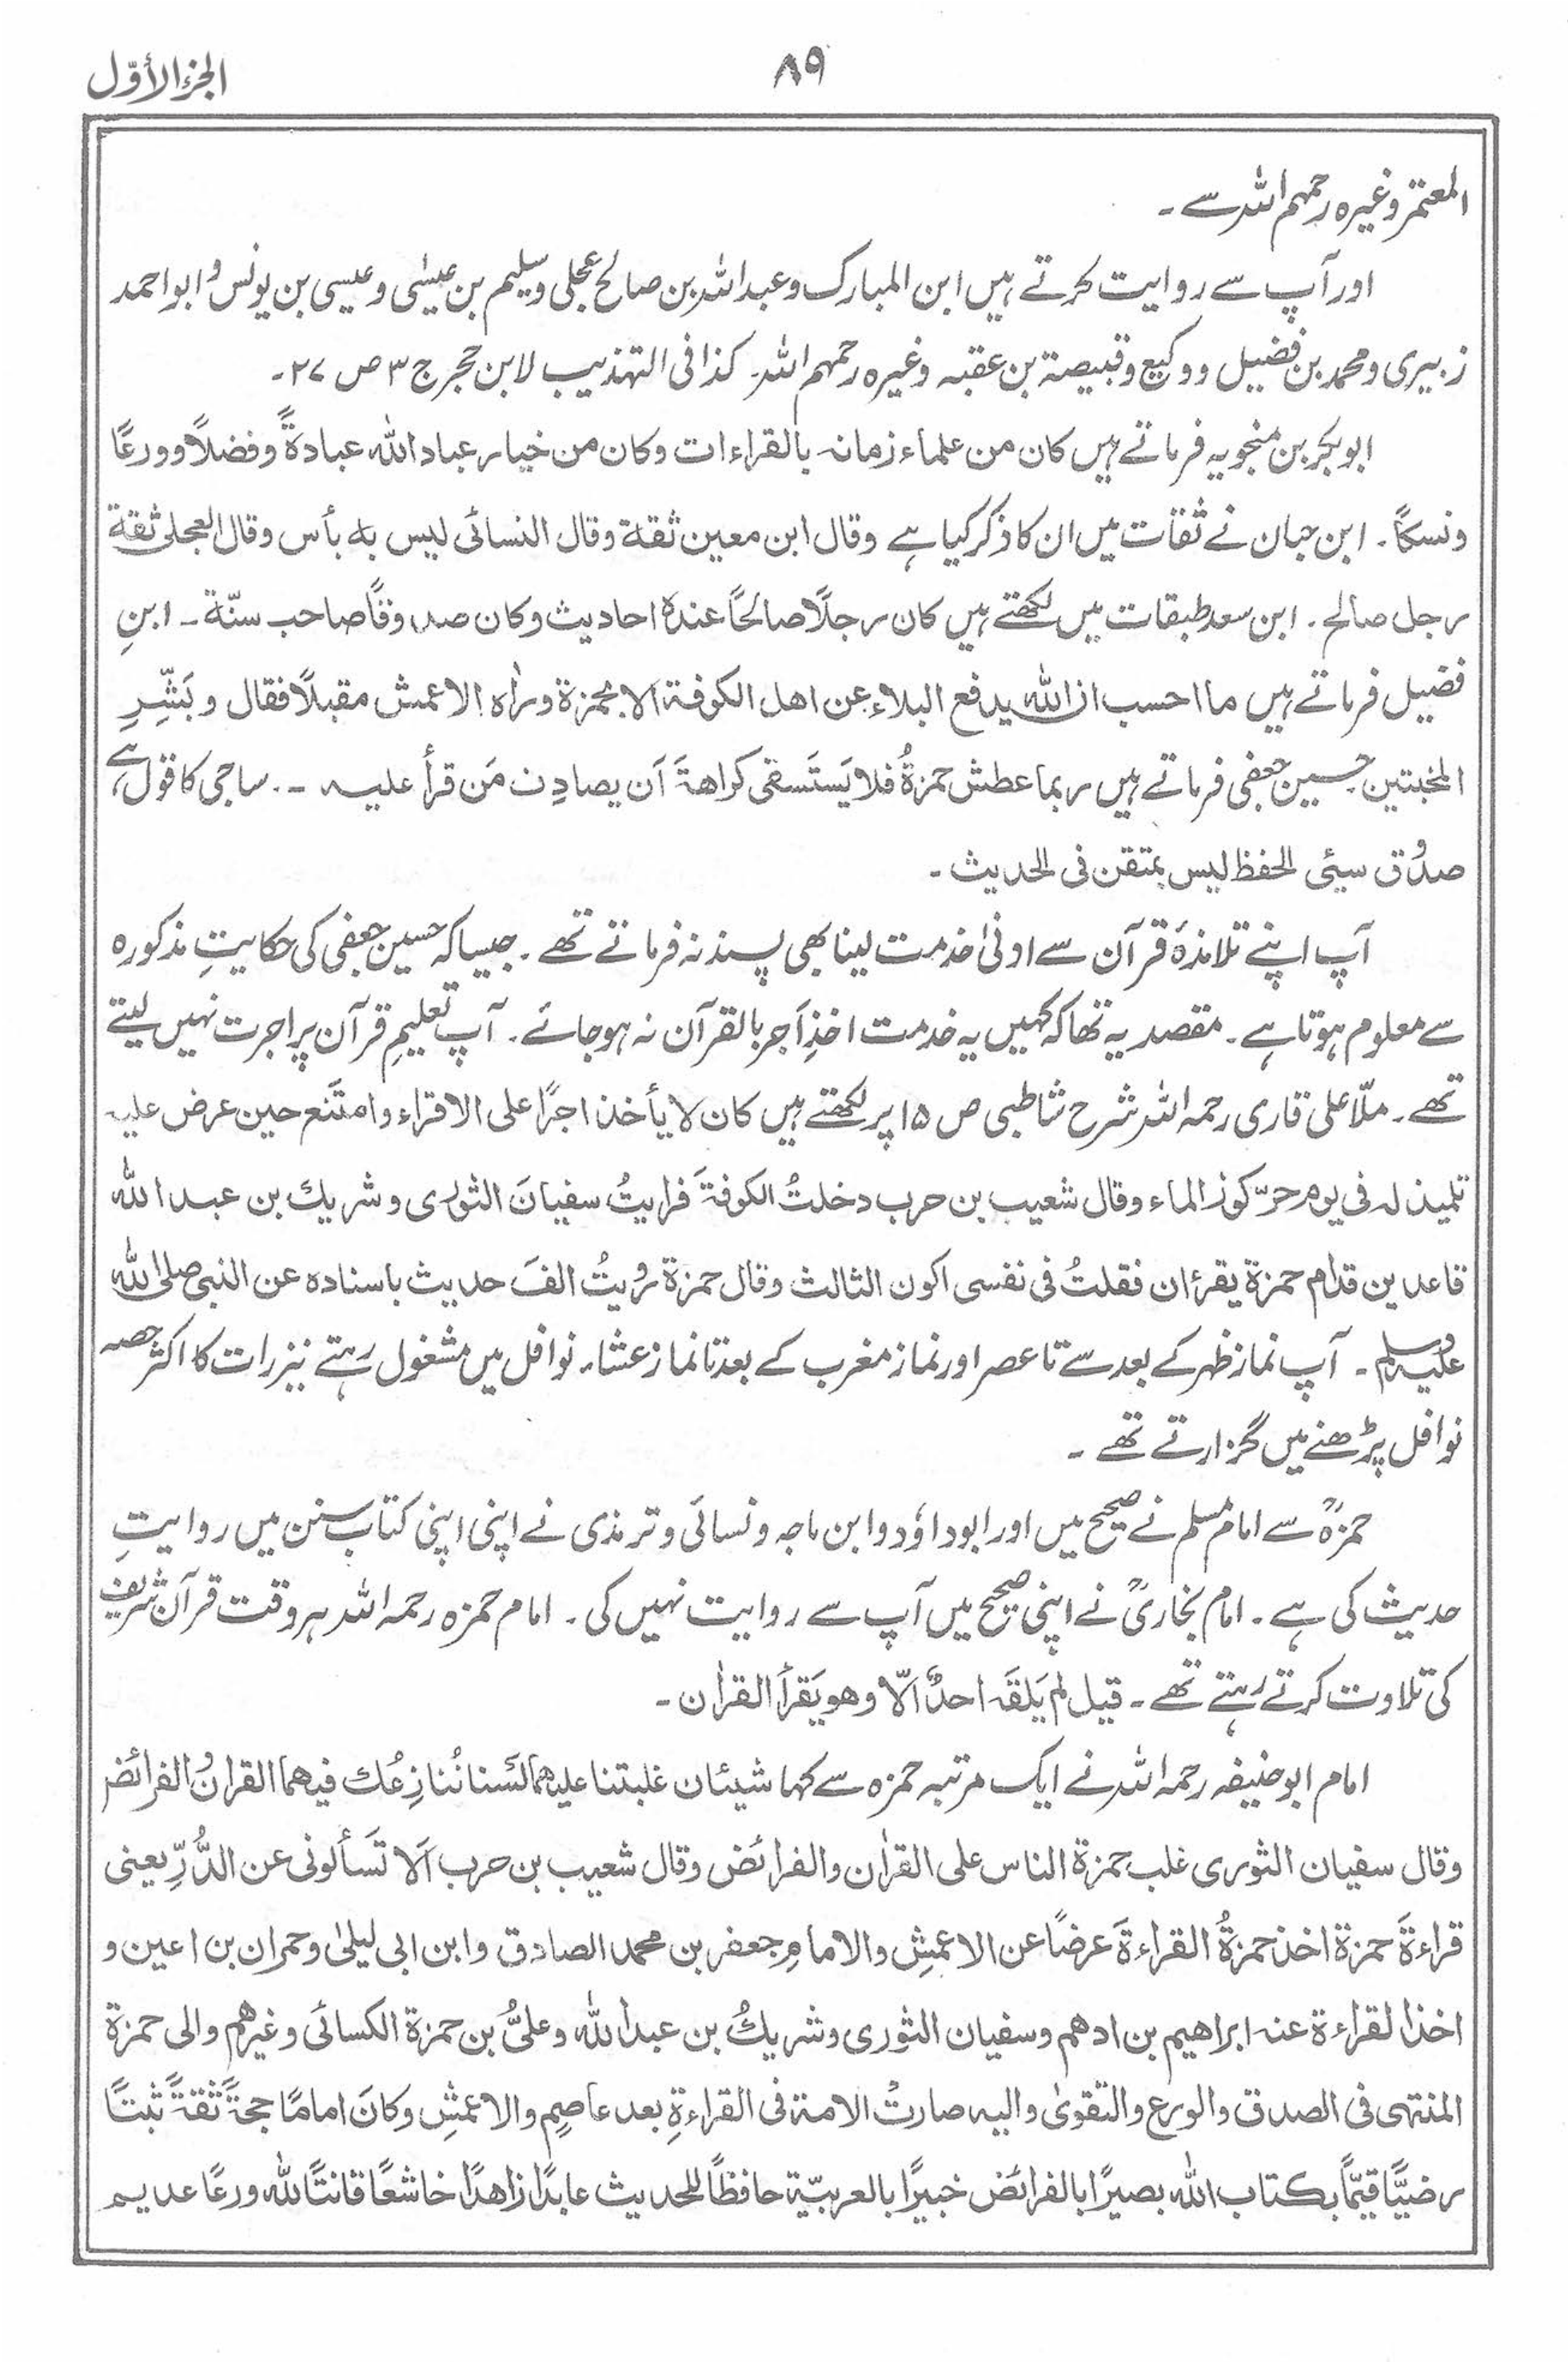 الجزء الأوّل
۸۹
المعتمر وغیرہ رحمہم اللہ سے ۔
اور آپ سے روایت کرتے ہیں ابن المبارک وعبداللہ بن صالح عجلی وسلیم بن عیسٰی وعیسی بن یونس وابو احمد
زبیری ومحمد بن فضیل ووکیع وقبیصۃ بن عقبہ وغیرہ رحمہم اللہ۔ کذا فی التہذیب لابن حجر ج ۳ ص ۲۷۔
ابوبکر بن منجویہ فرماتے ہیں کان من علماء زمانہ بالقراءات وکان من خیار عباد اللہ عبادۃً وفضلًا وورعًا
ونسکًا ۔ ابن حبان نے ثقات میں ان کا ذکر کیا ہے وقال ابن معین ثقة وقال النسائی لیس به بأس وقال العجلی ثقة
رجل صالح ۔ ابن سعد طبقات میں لکھتے ہیں کان رجلًا صالحًا عندہ احادیث وکان صدوقًا صاحب سنّة ۔ ابنِ
فضیل فرماتے ہیں ما احسب ان اللہ یدفع البلاء عن اھل الکوفة الا بحمزة وراٰہ الاعمش مقبلًا فقال وبَشِّرِ
المخبتین حسین جعفی فرماتے ہیں ربما عطش حمزةُ فلا یَستَسقی کراھةَ اَن یصادِف مَن قرأ علیہ ۔ ساجی کا قول ہے
صدُوق سیئی الحفظ لیس بمتقن فی الحدیث ۔
آپ اپنے تلامذۂ قرآن سے ادنیٰ خدمت لینا بھی پسند نہ فرماتے تھے ۔ جیسا کہ حسین جعفی کی حکایتِ مذکورہ
سے معلوم ہوتا ہے ۔ مقصد یہ تھا کہ کہیں یہ خدمت اخذِ اَجر بالقرآن نہ ہوجائے ۔ آپ تعلیمِ قرآن پر اجرت نہیں لیتے
تھے ۔ ملّا علی قاری رحمہ اللہ شرح شاطبی ص ۱۵ پر لکھتے ہیں کان لا یأخذ اجرًا علی الاقراء وامتَنع حین عرض علیہ
تلمیذ لہ فی یوم حرّ کوز الماء وقال شعیب بن حرب دخلتُ الکوفةَ فرایتُ سفیانَ الثوری وشریك بن عبد اللہ
قاعدین قدام حمزة یقرءان فقلتُ فی نفسی اکون الثالث وقال حمزة رُویتُ الفَ حدیث باسنادہ عن النبی صلی اللہ
علیہ وسلم ۔ آپ نماز ظہر کے بعد سے تا عصر اور نماز مغرب کے بعد تا نماز عشاء نوافل میں مشغول رہتے نیز رات کا اکثر حصہ
نوافل پڑھنے میں گزارتے تھے ۔
حمزہؒ سے امام مسلم نے صحیح میں اور ابوداؤد وابن ماجہ ونسائی وترمذی نے اپنی اپنی کتاب سنن میں روایتِ
حدیث کی ہے ۔ امام بخاریؒ نے اپنی صحیح میں آپ سے روایت نہیں کی ۔ امام حمزہ رحمہ اللہ ہر وقت قرآن شریف
کی تلاوت کرتے رہتے تھے ۔ قیل لم یَلقَہ احدٌ اِلّا وھو یَقرأ القراٰن ۔
امام ابوحنیفہ رحمہ اللہ نے ایک مرتبہ حمزہ سے کہا شیئان غلبتنا علیھما لَسنا نُنازِعُك فیھما القرانُ والفرائض
وقال سفیان الثوری غلب حمزة الناس علی القراٰن والفرائض وقال شعیب بن حرب اَلا تَسألونی عن الدُّرِّ یعنی
قراءةَ حمزة اخذ حمزةُ القراءةَ عرضًا عن الاعمشِ والامامِ جعفر بن محمد الصادق وابن ابی لیلیٰ وحمران بن اعین و
اخذ القراءة عنہ ابراھیم بن ادھم وسفیان الثوری وشریكُ بن عبد اللہ وعلیُّ بن حمزة الکسائی وغیرھم والی حمزة
المنتھی فی الصدق والورع والتقویٰ والیہ صارتْ الامة فی القراءةِ بعد عاصِمٍ والاعمشِ وکانَ امامًا حجةً ثقةً ثبتًا
رضیًّا قیّمًا بکتاب اللہ بصیرًا بالفرائض خبیرًا بالعربیّة حافظًا للحدیث عابدًا زاھدًا خاشعًا قانتًا للہ ورعًا عدیم